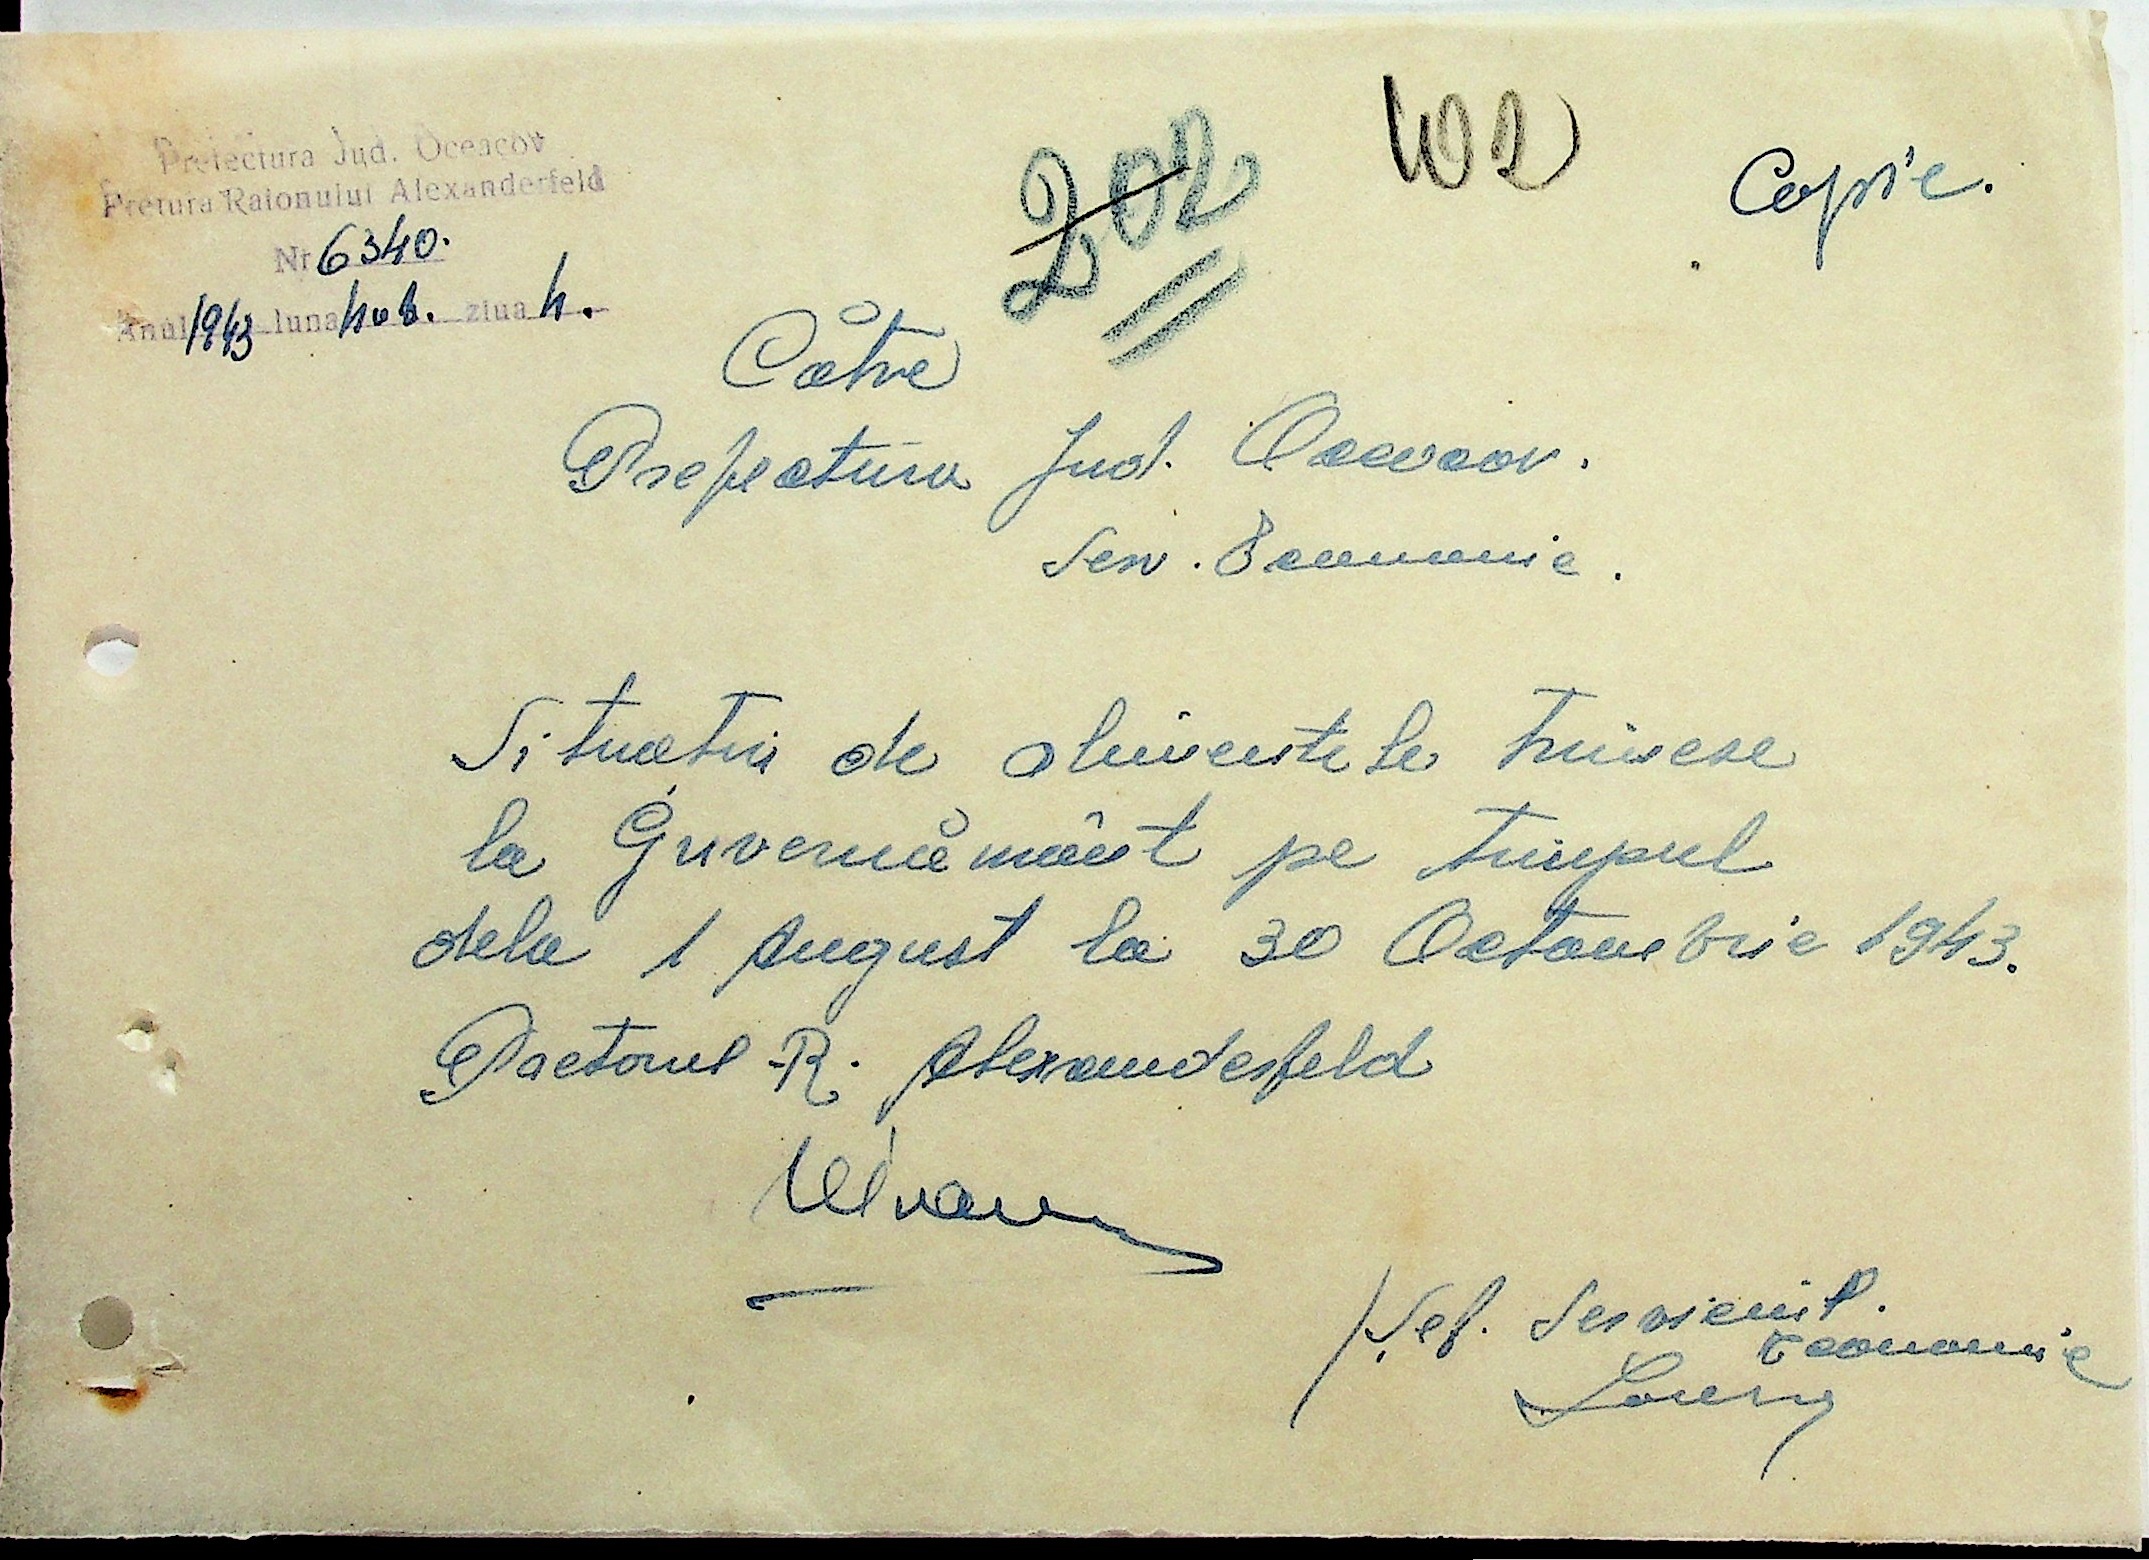 Prefectura Jud. Oceacov
Pretura Raionului Alexanderfeld
Nr 6340.
Anul 1943 luna Nob. ziua 4.
202
402
Copie.
Către
Prefectura Jud. Oceacov.
Serv. Economic.
Situatia de alimentele trimese
la Guvernământ pe timpul
dela 1 August la 30 Octombrie 1943.
Pretorul R. Alexanderfeld
Șef. Serviciul.
Economic